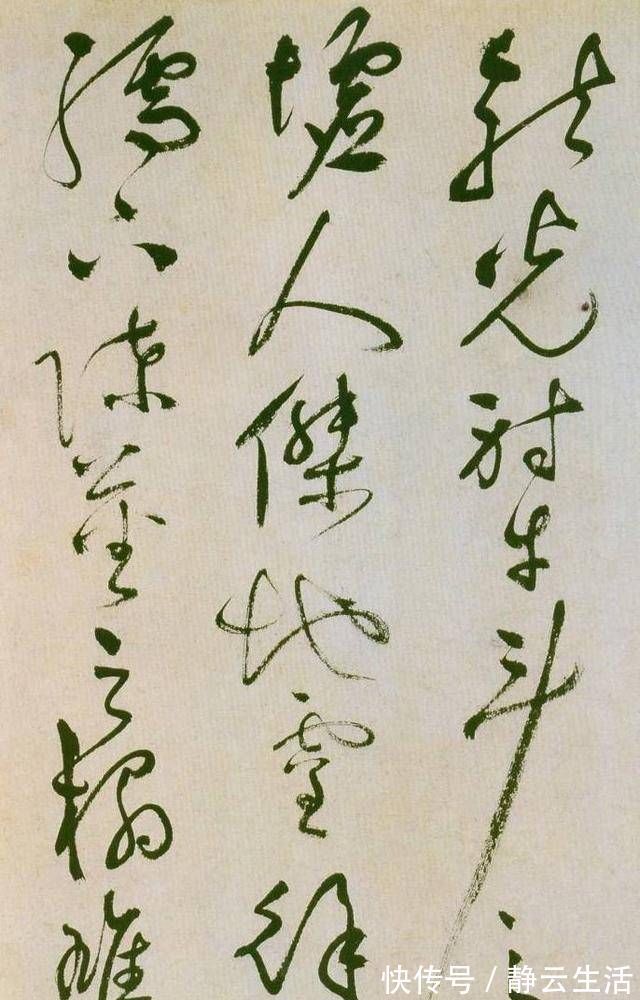 龍光射牛斗之
墟人傑地靈徐
孺下陳蕃之榻雄
快传号/静云生活